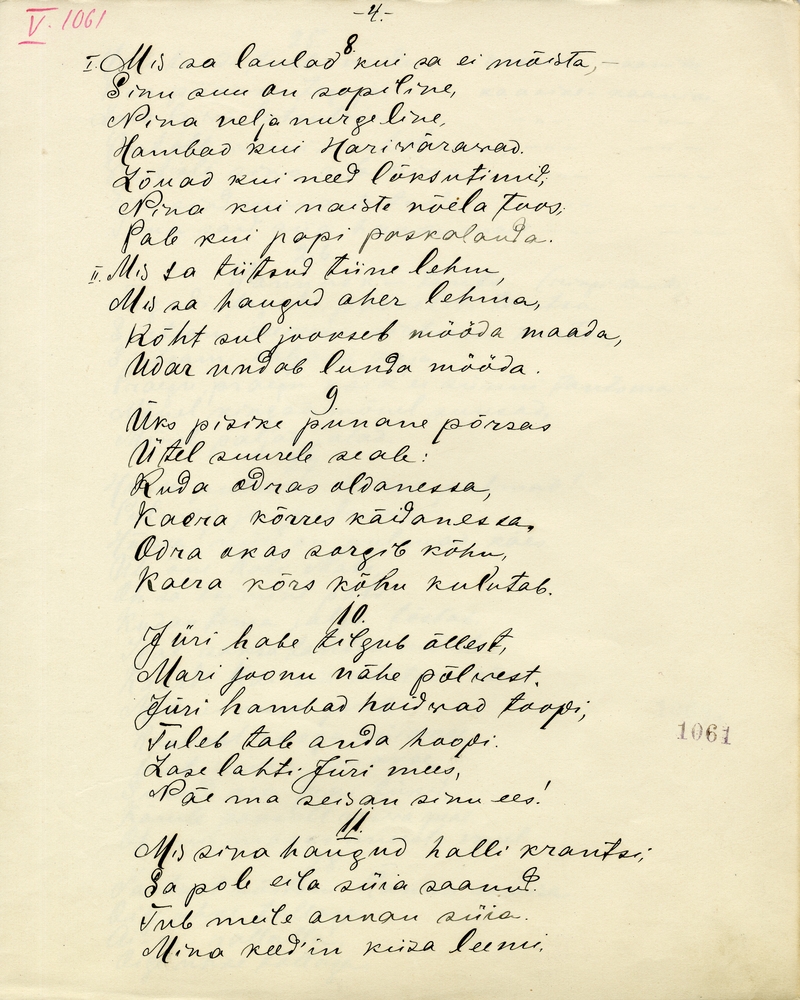 V. 1061
-4.-
8.
I. Mis sa laulad kui sa ei mõista,-
Sinu suu on sopiline,
Nina nelja nurgeline,
Hambad kui Hariwärawad.
Lõuad kui need lõksutimid,
Nina kui naiste nõela toos,
Pale kui papi paskalauda.
II. Mis sa tiitsud tiine lehm,
Mis sa haugud aher lehma,
Kõht sul jookseb mööda maada,
Udar undab lunda mööda.
9.
Üks pisike punane põrsas
Ütel suurele seale:
Kuda odras oldanessa,
Kaera kõrres käidanessa.
Odra okas sorgib kõhu,
Kaera kõrs kõhu kulutab.
10.
Jüri habe tilgub õllest,
Mari joonu nähe põlwest.
Jüri hambad hoidwad toopi,
Tuleb tale anda hoopi.
Lase lahti Jüri mees,
Näe ma seisan sinu ees!
1061
11.
Mis sina haugud halli krantsi,
Sa pole eila süia saanud.
Tule meile annan süia.
Mina keed'in kiisa leemi,